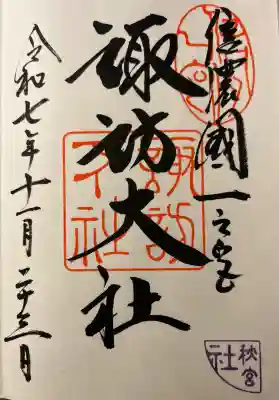 信濃國一之宮
諏訪大社
諏訪
大社
令和七年十一月二十三日
秋宮
社